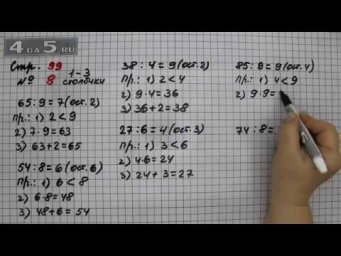 4DA5.RU
Стр. 99
№ 8 1-3 столбики
65:9=7(ост.2)
Пр.: 1) 2<9
2) 7·9=63
3) 63+2=65
54:8=6(ост.6)
Пр.: 1) 6<8
2) 6·8=48
3) 48+6=54
38:4=9(ост.2)
Пр.: 1) 2<4
2) 9·4=36
3) 36+2=38
27:6=4(ост.3)
Пр.: 1) 3<6
2) 4·6=24
3) 24+3=27
85:9=9(ост.4)
Пр.: 1) 4<9
2) 9·9=
74:8=